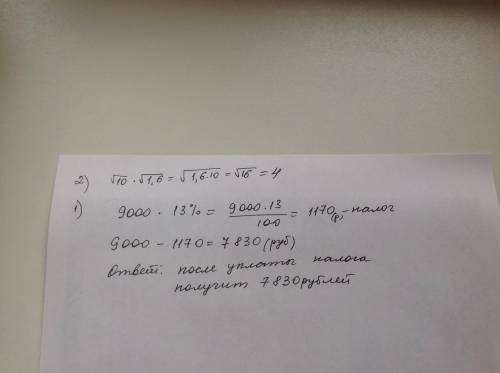 2) √10 · √1,6 = √1,6·10 = √16 = 4
1) 9000 · 13% = 9000·13/100 = 1170 р, - налог
9000 - 1170 = 7830 (руб)
Ответ: после уплаты налога
получит 7830 рублей